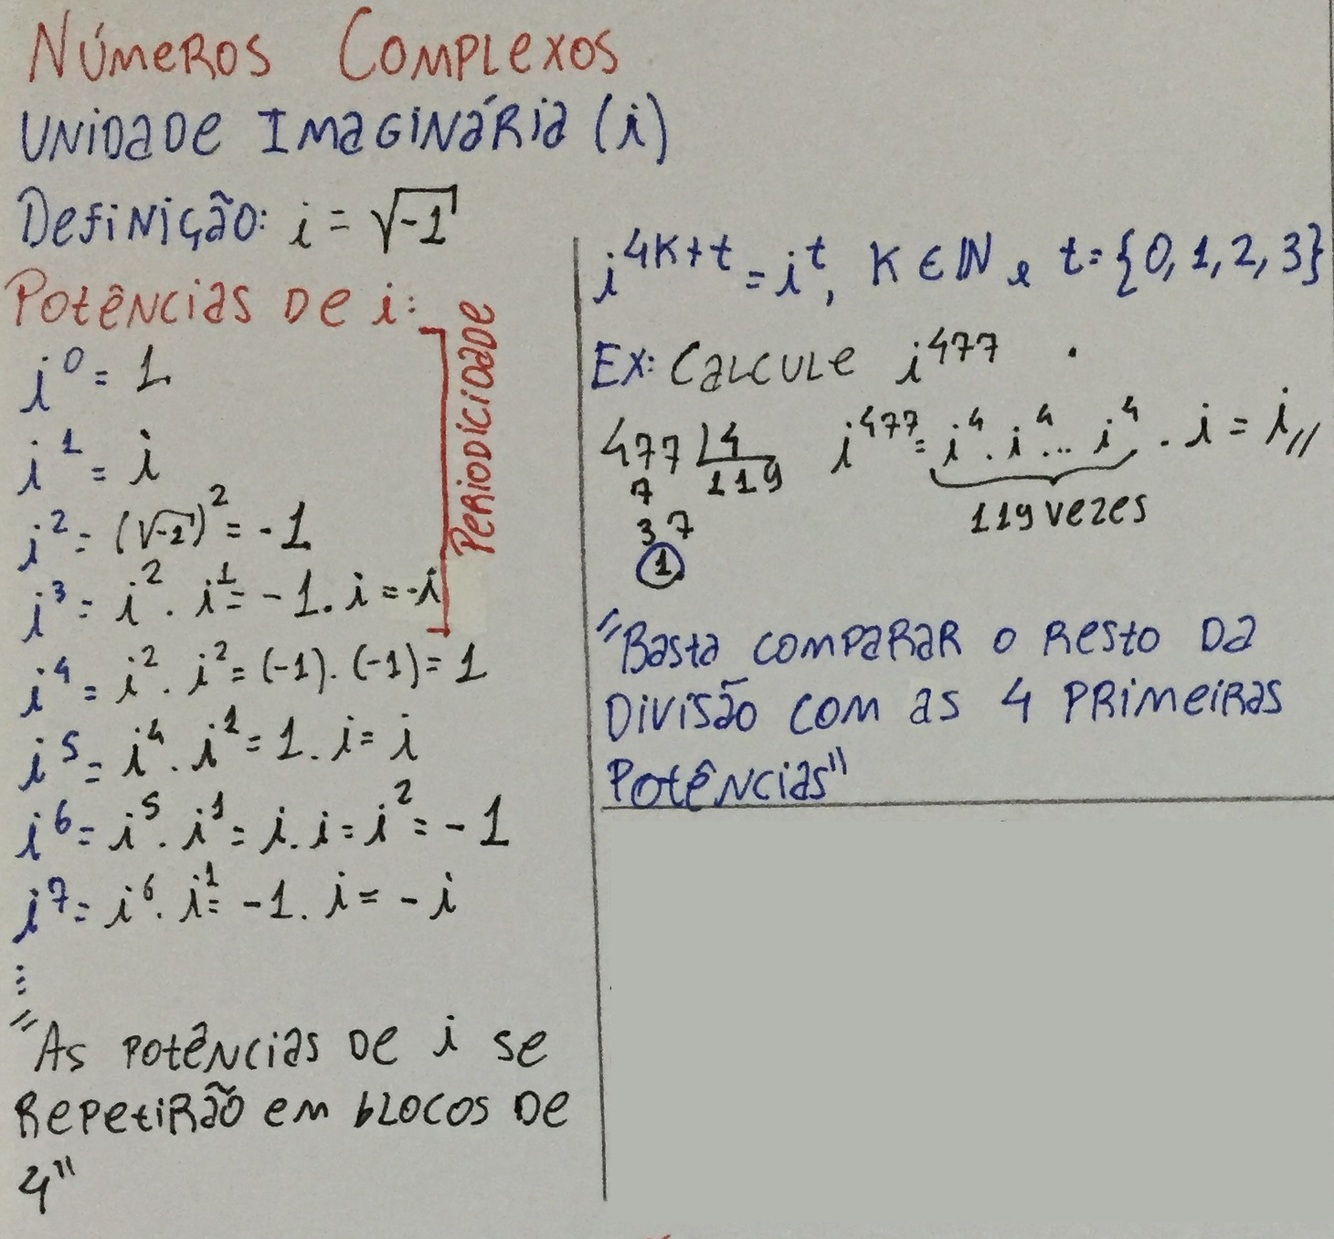 Números Complexos
Unidade Imaginária (i)
Definição: i = √-1
Potências de i:
i⁰ = 1
i¹ = i
i² = (√-1)² = -1
i³ = i² . i¹ = -1 . i = -i
i⁴ = i² . i² = (-1) . (-1) = 1
i⁵ = i⁴ . i¹ = 1 . i = i
i⁶ = i⁵ . i¹ = i . i = i² = -1
i⁷ = i⁶ . i¹ = -1 . i = -i
...
"As potências de i se
repetirão em blocos de
4"
Periodicidade
i⁴ᴷ⁺ᵗ = iᵗ, K ∈ ℕ e t = {0, 1, 2, 3}
Ex: Calcule i⁴⁷⁷ .
477 | 4 i⁴⁷⁷ = i⁴ . i⁴ ... i⁴ . i = i //
7 119
37 119 vezes
1
"Basta comparar o resto da
divisão com as 4 primeiras
potências"